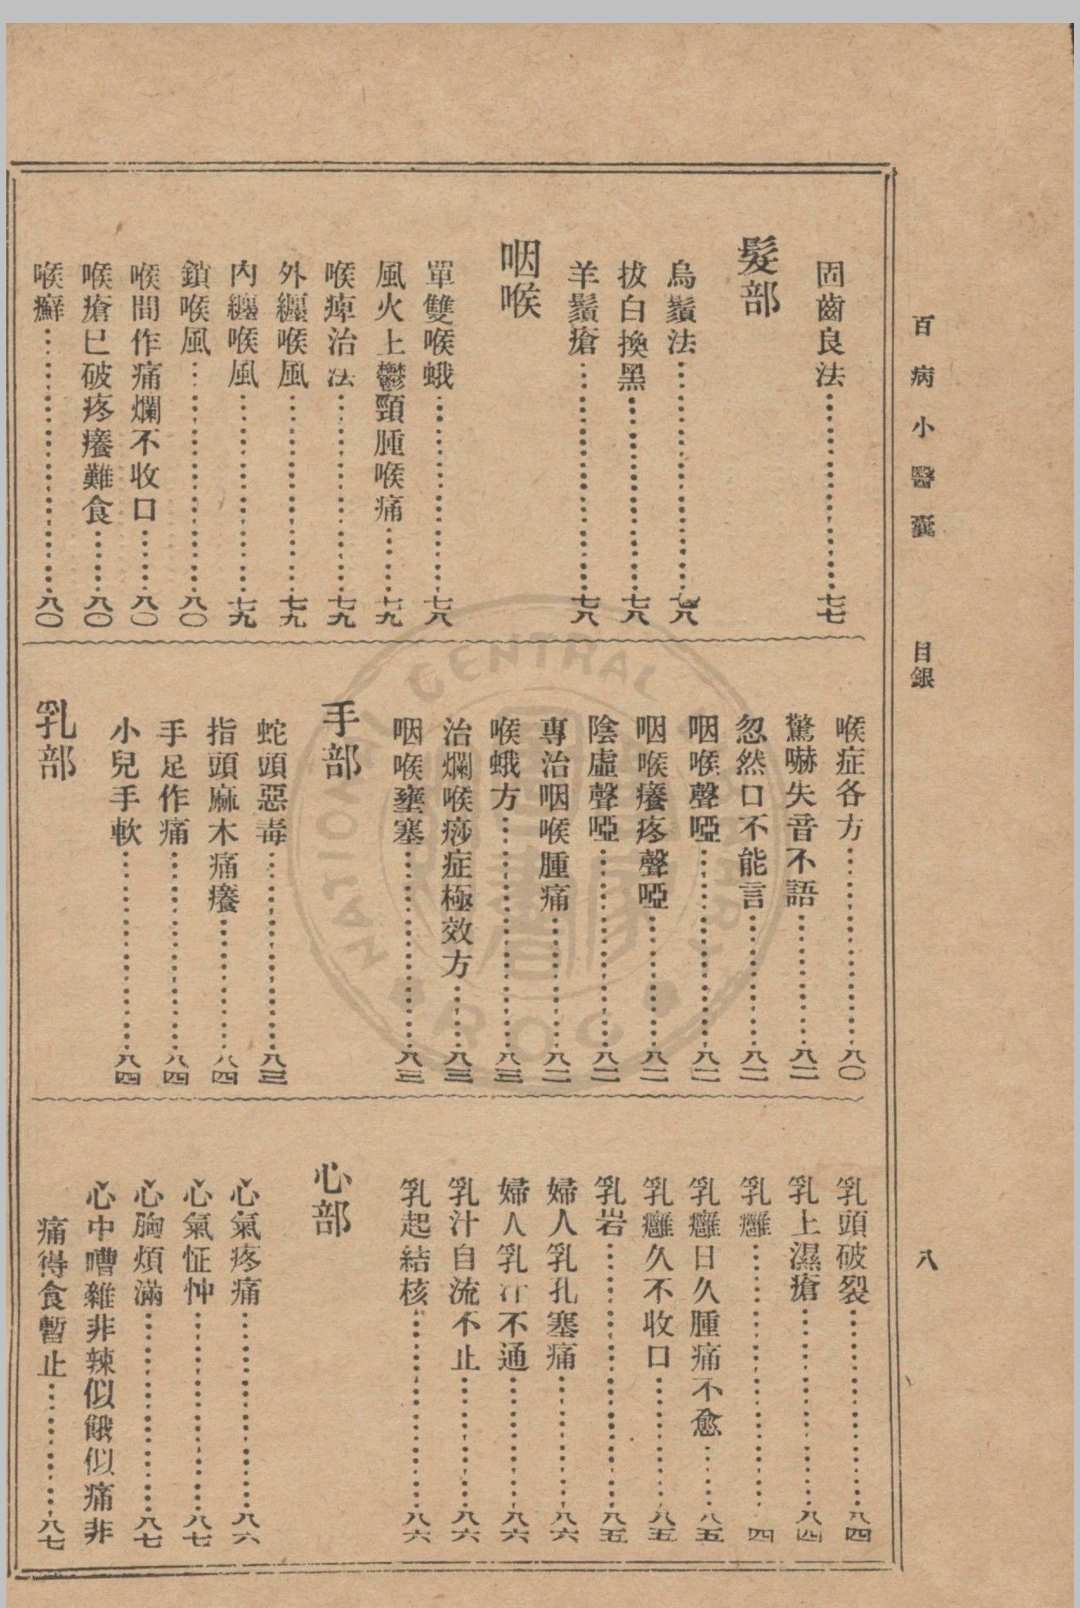 百病小醫囊 目錄 八
固齒良法……七七
髮部
烏鬚法……七八
拔白換黑……七八
羊鬚瘡……七八
咽喉
單雙喉蛾……七八
風火上鬱頸腫喉痛……七九
喉痺治法……七九
外纏喉風……七九
內纏喉風……七九
鎖喉風……八〇
喉間作痛爛不收口……八〇
喉瘡已破疼癢難食……八〇
喉癬……八〇
喉症各方……八〇
驚嚇失音不語……八一
忽然口不能言……八二
咽喉聲啞……八二
咽喉癢疼聲啞……八二
陰虛聲啞……八二
專治咽喉腫痛……八二
喉蛾方……八三
治爛喉痧症極效方……八三
咽喉壅塞……八三
手部
蛇頭惡毒……八三
指頭麻木痛癢……八四
手足作痛……八四
小兒手軟……八四
乳部
乳頭破裂……八四
乳上濕瘡……八四
乳癰……四
乳癰日久腫痛不愈……八五
乳癰久不收口……八五
乳岩……八五
婦人乳孔塞痛……八六
婦人乳汁不通……八六
乳汁自流不止……八六
乳起結核……八六
心部
心氣疼痛……八六
心氣怔忡……八七
心胸煩滿……八七
心中嘈雜非辣似餓似痛非
痛得食暫止……八七